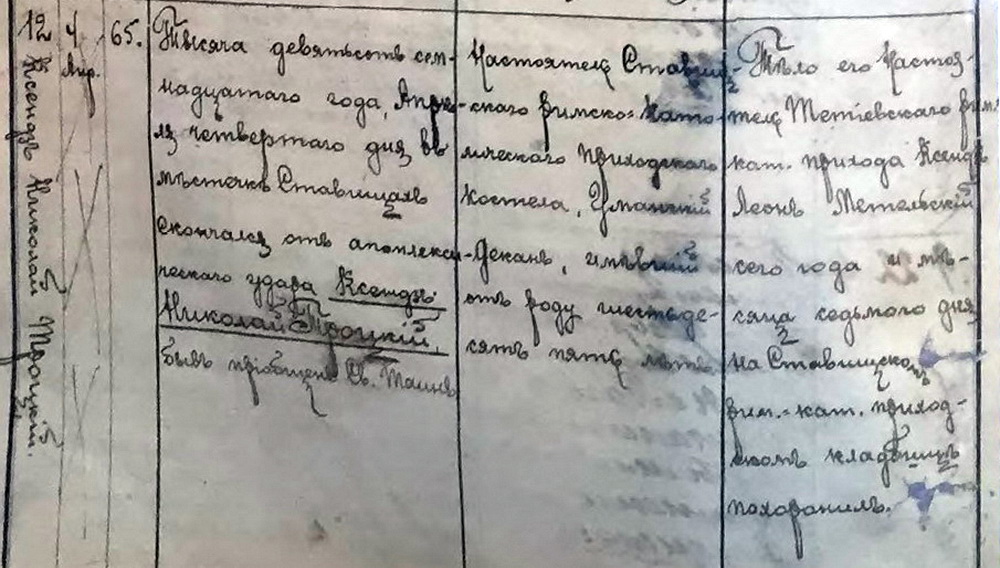 12
Ксендзъ Николай Троцкій.
4
Апр.
65.
Тысяча девятьсотъ сем-
надцатаго года, Апрѣ-
ля четвертаго дня въ
мѣстечкѣ Ставищахъ
скончался отъ апоплекси-
ческаго удара Ксендзъ
Николай Троцкій,
бывъ пріобщенъ Св. Таинъ
Настоятель Ставищ-
скаго римско-като-
лическаго приходскаго
костела, Уманскій
Деканъ, имѣвшій
отъ роду шестьде-
сятъ пять лѣтъ
Тѣло его Настоя-
тель Тетіевскаго рим.
кат. прихода Ксендзъ
Леонъ Метельскій
сего года и мѣ-
сяца седьмого дня
на Ставищскомъ
рим.-кат. приход-
скомъ кладбищѣ
похоранилъ.